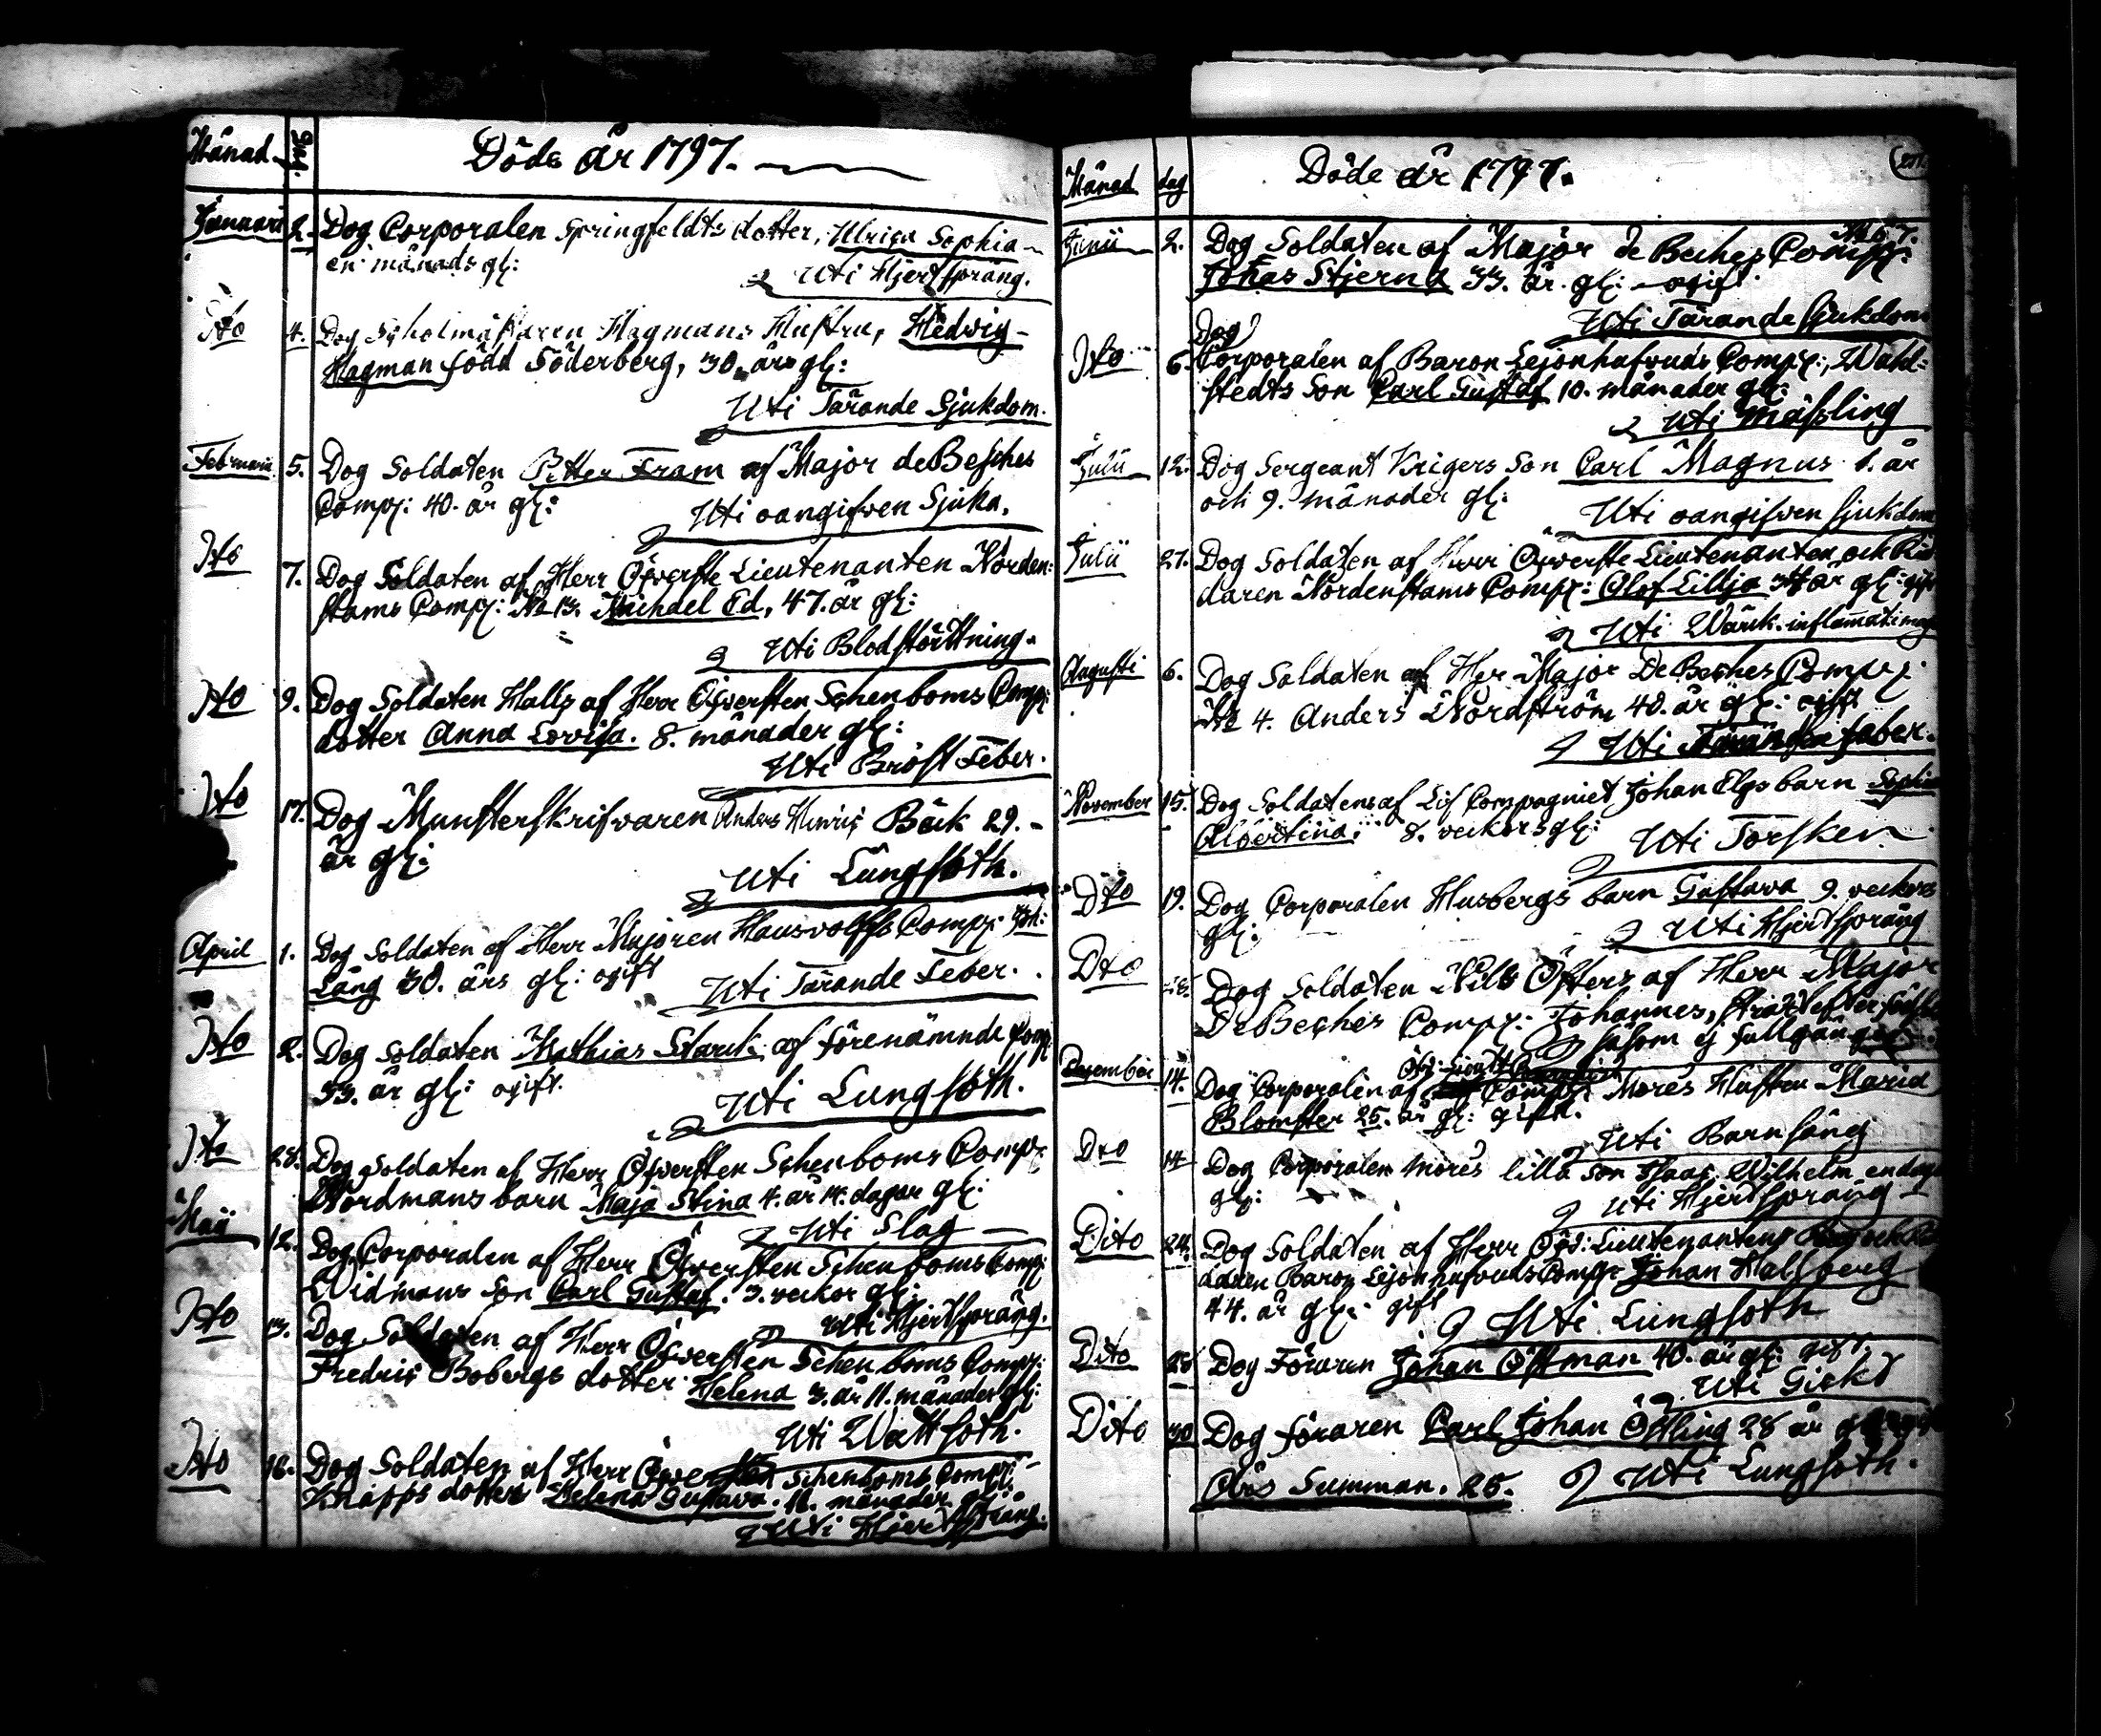 Månad Dag. Döde år 1797.
Januari 2. Dog Corporalen Springfeldts dotter, Ulrica Sophia
en månads gl:
Uti Hjertspräng.
Dto 4. Dog Hagmans Hustru, Hedvig
Hagman född Söderberg, 30. års gl:
Uti Tärande Sjukdom.
Februarii 5. Dog Soldaten Petter Fram af Major de Besches
Comp: 40. år gl:
Uti oangifven Sjuka.
Dto 7. Dog Soldaten af Herr Öfverste Lieutenanten Norden:
stams Comp: No 13. Michael Ed, 47. år gl:
Uti Blodstörttning.
Dto 9. Dog Soldaten Halls af Herr Öfversten Schenboms Comp:
dotter Anna Lovisa. 8. månader gl:
Uti Bröst Feber.
Dto 17. Dog Munsterskrifvaren Anders Hinric Bäck 29.
år gl:
Uti Lungsoth.
April 1. Dog Soldaten af Herr Majoren Hausvolffs Comp: Joh:
Lång 30. års gl: ogift
Uti Tärande Feber.
Dto 2. Dog Soldaten Mathias Stark af förenämnde Comp:
33. år gl: ogift.
Uti Lungsoth.
Dto 28. Dog Soldaten af Herr Öfversten Schenboms Comp:
Nordmans barn Maja Stina 4. år 14. dagar gl:
Uti Slag
Maii 12. Dog Corporalen af Herr Öfversten Schenboms Comp:
Widmans Son Carl Gustaf. 3. veckor gl:
Uti Hjertspräng.
Dto 13. Dog Soldaten af Herr Öfversten Schenboms Comp:
Fredric Bobergs dotter Helena 3. år 11. månader gl:
Uti Wattsoth.
Dto 16. Dog Soldaten af Herr Öfversten Schenboms Comp:
Knapps dotter Helena Gustava. 11. månader gl:
Uti Hjertspräng.
Månad dag Döde år 1797.
Junii 2. Dog Soldaten af Major de Beches Comp:
Johas Stjerna 33. år. gl: ogift
Uti Tärande sjukdom
Dog
Dto 6. Corporalen af Baron Lejonhufvuds Comp:, Wahl:
stedts Son Carl Gustaf 10. månader gl:
Uti Mässling
Julii 12. Dog Sergeant Krigers Son Carl Magnus 1. år
och 9. månader gl:
Uti oangifven sjukdom
Julii 27. Dog Soldaten af Herr Öfverste Lieutenanten och Rid
daren Nordenstams Comp: Olof Lillja år gl: gift
Uti Wärk.
Augusti 6. Dog Soldaten af Herr Major De Beches Comp:
No 4. Anders Nordström 40. år gl: gift
Uti feber.
November 15. Dog Soldatens af Lif Compagniet Johan Elgs barn Sophia
Albertina. 8. veckors gl:
Uti Torsken.
Dto 19. Dog Corporalen Husbergs barn Gustava 9. veckors
gl:
Uti Hjertspräng
Dto Dog Soldaten Nils Östers af Herr Major
De Beches Comp: Johannes, strax efter
såsom ej fullgången
December 14. Dog Corporalen af Comp: Morés Hustru Maria
Blomster 25. år gl: gift.
Uti Barnsäng
Dto 14 Dog Corporalen Morés lilla Son Isaac Wilhelm en dags
gl:
Uti Hjertspräng
Dito 24. Dog Soldaten af Herr Öfv: Lieutenantens och
ddaren Baron Lejonhufvuds Comp: Johan Hallberg
44. år gl: gift
Uti Lungsoth
Dito 28 Dog Föraren Johan Öttman 40. år gl: gift.
Uti Gickt
Dito 30 Dog föraren Carl Johan Östling 28 år
Uti Lungsoth.
Års Summan. 25.